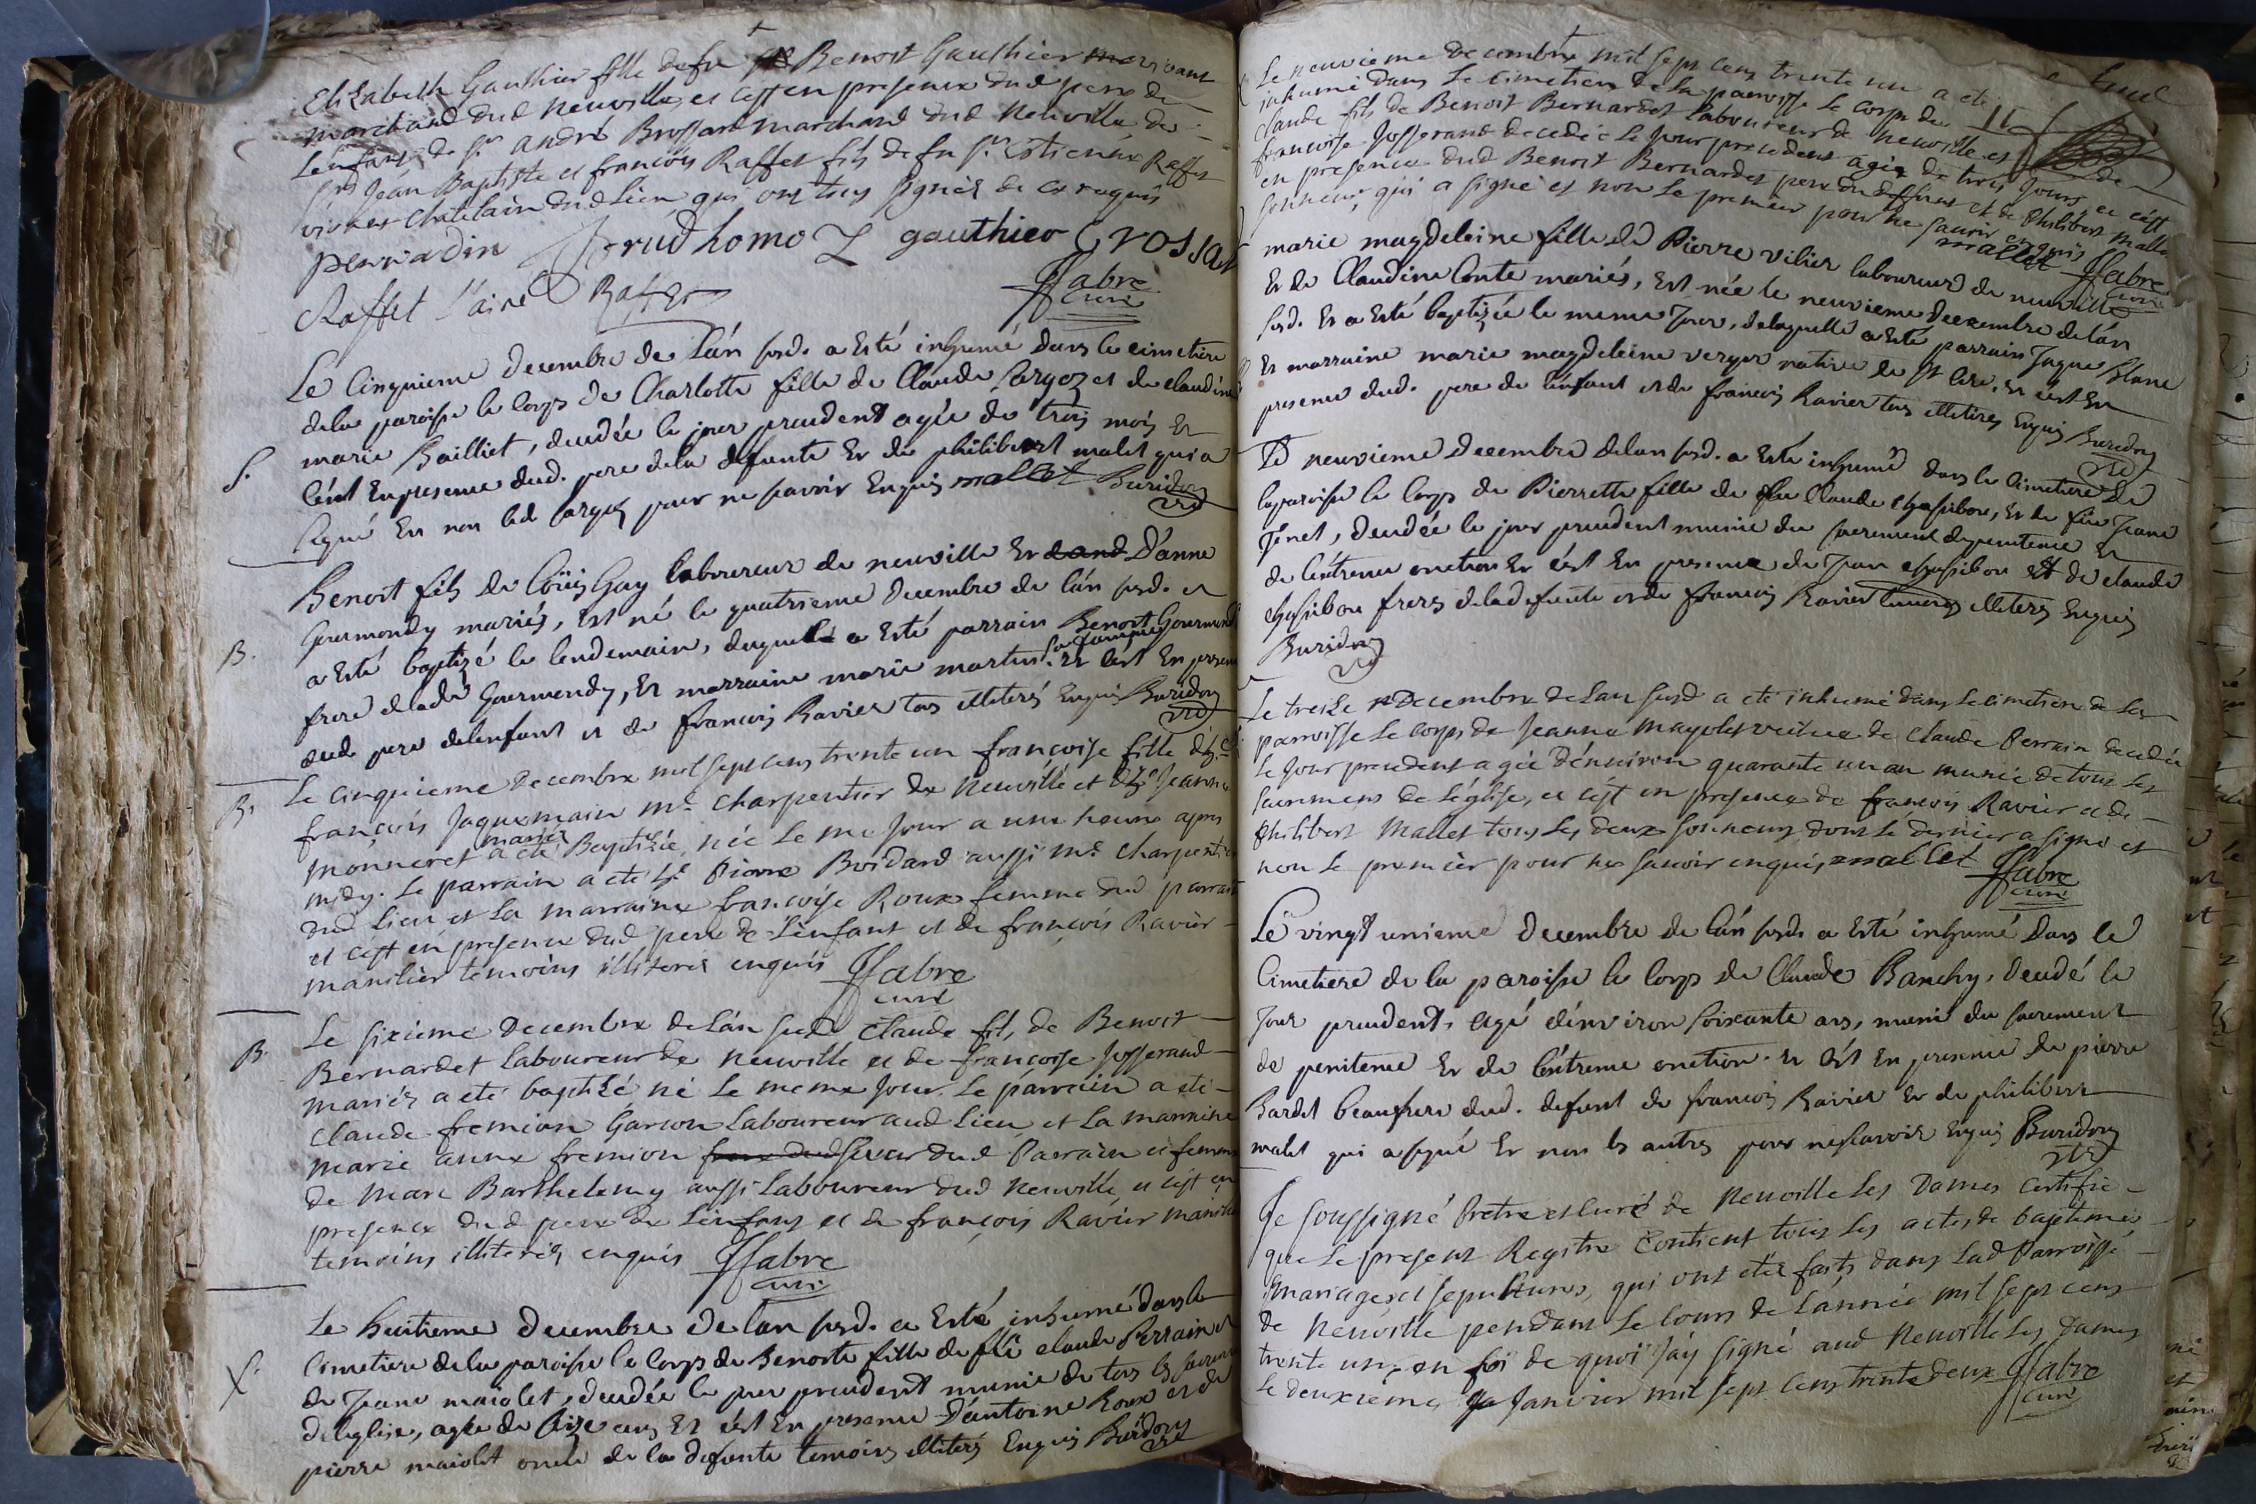 Elizabeth Gauthier fille de fu Benoit Gauthier vivant
marchand dud Neuville, et c'est en presence dud pere de
L'enfant de Sr andré Brossard marchand dud Neuville, de
Srs Jean Baptiste et françois Raffet fils de fu Sr Estienne Raffet
vivant chatelain dud Lieu qui ont tous signés de ce requis
perriadin Prudhomo gauthier Brossar
Raffet l'ainé Raffet ffabre
curé
Le Cinquieme decembre de l'an susd. a Esté inhumé dans le cimetiere
de la paroisse le Corps de Charlotte fille de Claude Pargoz et de claudine
marie Bailliet, decedée le jour precedent agée de trois mois Et
S.
C'est En presence dud. pere de la defunte Et de philibert malet qui a
signé Et non led pargoz pour ne sçavoir Enquis mallet Buridon
vic
Benoit fils de Loüis Gay laboureur de neuville Et D'anne
Gourmondy mariés, Est né le quatrieme decembre de l'an susd. et
B.
a Esté baptizé le lendemain, duquel a Esté parrain Benoit Gourmondy
frere de lade Gourmondy, Et marraine marie martin sa femme. Et c'est En presence
dud pere de lenfant et de francois Ravier tous illiterés Enquis Buridon
vic
B.
Le cinquieme decembre mil sept cens trente un françoise fille d'hte
françois Jaquemain me charpentier de Neuville et d'hte Jeanne
Monneret mariés a eté Baptisée, née Le me Jour a une heure apres
midy. Le parrain a eté hte Pierre Boidard aussi me charpentier
dud Lieu et La marraine francoise Roux femme dud parrain
et c'est en presence dud pere de L'enfant et de françois Ravier
manilier temoins illiterés enquis ffabre
curé
B.
Le sixieme Decembre de L'an susd Claude fils de Benoit
Bernardet Laboureur de Neuville et de francoise Josserand
mariés a eté baptisé né Le meme Jour. Le parrain a eté
Claude fremion Garcon Laboureur aud Lieu et La marraine
Marie anne fremion soeur dud Parrain et femme
de Marc Barthelemy aussi Laboureur dud Neuville, et c'est en
presence dud pere de L'enfant et de françois Ravier manilier
temoins illiterés enquis ffabre
curé
Le huitieme decembre de lan susd. a Esté inhumé dans le
S.
Cimetiere de la paroisse le corps de Benoite fille de fû claude Perrain et
de Jeane maiolet, decedée le jour precedent munie de tous les sacremens
de l'eglise, agée de seize ans Et c'est En presence d'antoine Roux et de
pierre maiolet oncle de la defunte temoins illiterés Enquis Buridon
vic
Le neuvieme decembre mil sept cens trente un a eté
inhumé dans Le cimetiere de La paroisse Le corps de
Claude fils de Benoit Bernardet Laboureur de Neuville et
francoise Josserand decedé Le Jour precedent agé de trois Jours, et c'est
en presence dud Benoit Bernardet pere du deffunt et de Philibert Mallet
sonneur, qui a signé et non Le premier pour ne savoir enquis
mallet ffabre
curé
marie magdeleine fille de Pierre vilier laboureur de neuville
Et de Claudine Conte mariés, Est née le neuvieme decembre de l'an
susd. Et a Esté baptizée le meme Jour, de laquelle a Esté parrain Jaque blanc
Et marraine marie magdeleine verger native de St Cire. Et c'est En
presence dud. pere de l'enfant et de francois Ravier tous illiterés Enquis Buridon
vic
Le neuvieme decembre de lan susd. a Esté inhumé dans le Cimetiere de
la paroisse le Corps de Pierrette fille de feu Claude chassibou, Et de fue Jeane
Jenet, decedée le jour precedent munie du sacrement de penitence Et
de l'extreme onction Et c'est En presence de Jean chassibou et de claude
chassibou freres de la defunte et de francois Ravier temoins illiterés Enquis
Buridon
vic
Le treize Decembre de L'an susd a eté inhumé dans Le cimetiere de La
parroisse Le corps de Jeanne Mayolet veuve de Claude Perrain decedée
Le Jour precedent agée d'environ quarante un an munie de tous Les
sacremens de L'église, et c'est en presence de françois Ravier et de
Philibert Mallet tous Les deux sonneurs dont Le dernier a signé et
non Le premier pour ne savoir enquis mallet ffabre
curé
Le vingt unieme decembre de l'an susd. a Esté inhumé dans le
Cimetiere de la paroisse le corps de Claude Banchy, decedé le
Jour precedent, agé d'environ soixante ans, muni du sacrement
de penitence Et de l'extreme onction. Et c'est En presence de pierre
Bardet beaufrere dud. defunt de francois Ravier Et de philibert
malet qui a signé Et non les autres pour ne sçavoir Enquis Buridon
vic
Je soussigné Pretre et curé de Neuville Les Dames certifie
que Le present Registre contient tous Les actes de baptêmes
mariages et sepultures, qui ont étés faits dans Lad Parroisse
de Neuville pendant Le cours de L'année mil sept cens
trente un, en foi de quoi j'ay signé aud Neuville Les Dames
Le deuxieme Janvier mil sept cens trente deux ffabre
curé